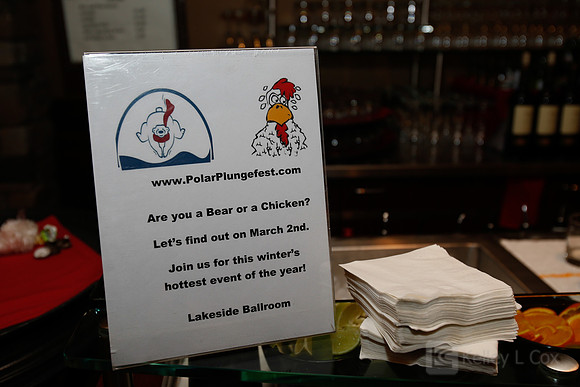 www.PolarPlungefest.com
Are you a Bear or a Chicken?
Let's find out on March 2nd.
Join us for this winter's
hottest event of the year!
Lakeside Ballroom
Kelly L Cox